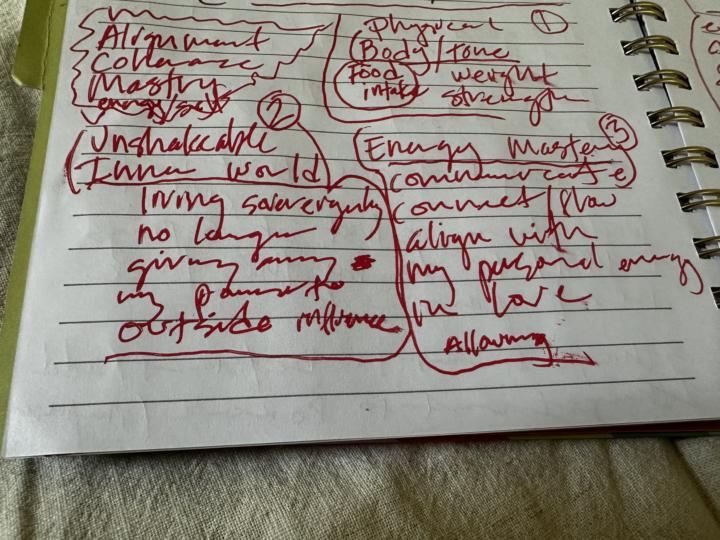 Alignment
Coherence
Mastry
energy/self
Physical 1
Body/tone
Food weight
intake strength
2
Unshakeable
Inner world
living sovereignly
no longer
giving away
my power to
outside influence
3
Energy Master
communicate
connect/flow
align with
my personal energy
in love
Allowing